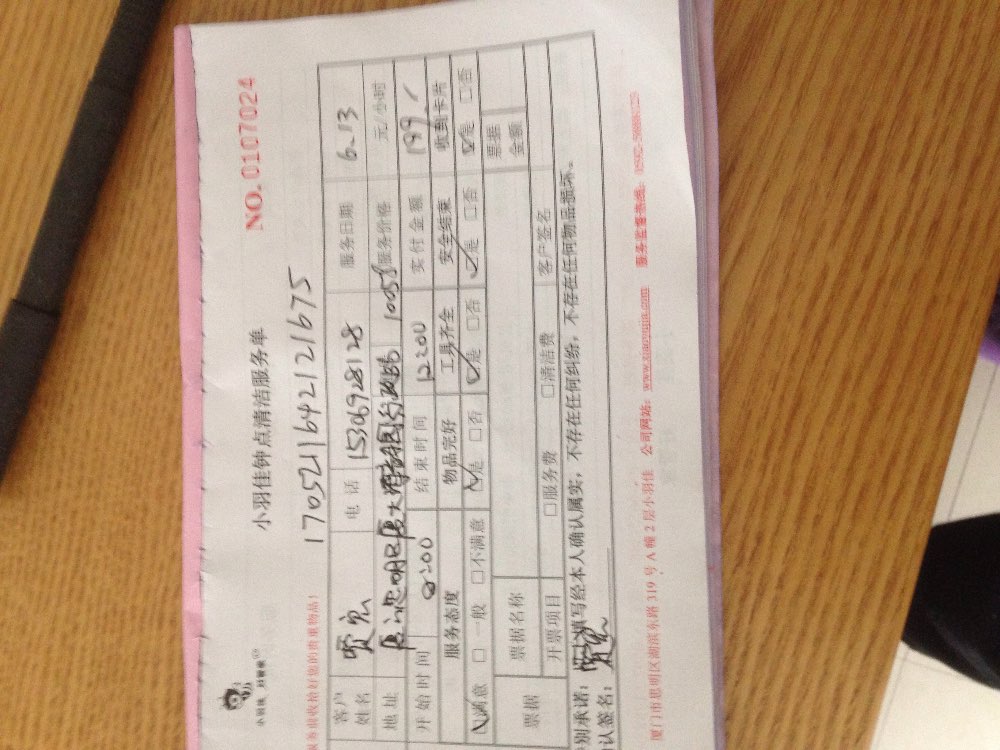 小羽佳钟点清洁服务单
NO. 0107024
1705211642121675
服务前收拾好您的贵重物品!
客户姓名 电话 15306928128 服务日期 6.13
地址 1005B 服务价格 元/小时
开始时间 8:00 结束时间 12:00 实付金额 199
服务态度 物品完好 工具齐全 安全结束 收到卡片
☑满意 □一般 □不满意 ☑是 □否 ☑是 □否 ☑是 □否 ☑是 □否
票据 票据名称 票据金额
开票项目 □服务费 □清洁费 客户签名
别承诺: 填写经本人确认属实,不存在任何纠纷,不存在任何物品损坏。
认签名:
厦门市思明区湖滨东路 319 号 A 幢 2 层小羽佳 公司网站: www.xiaoyujia.com 服务监督热线: